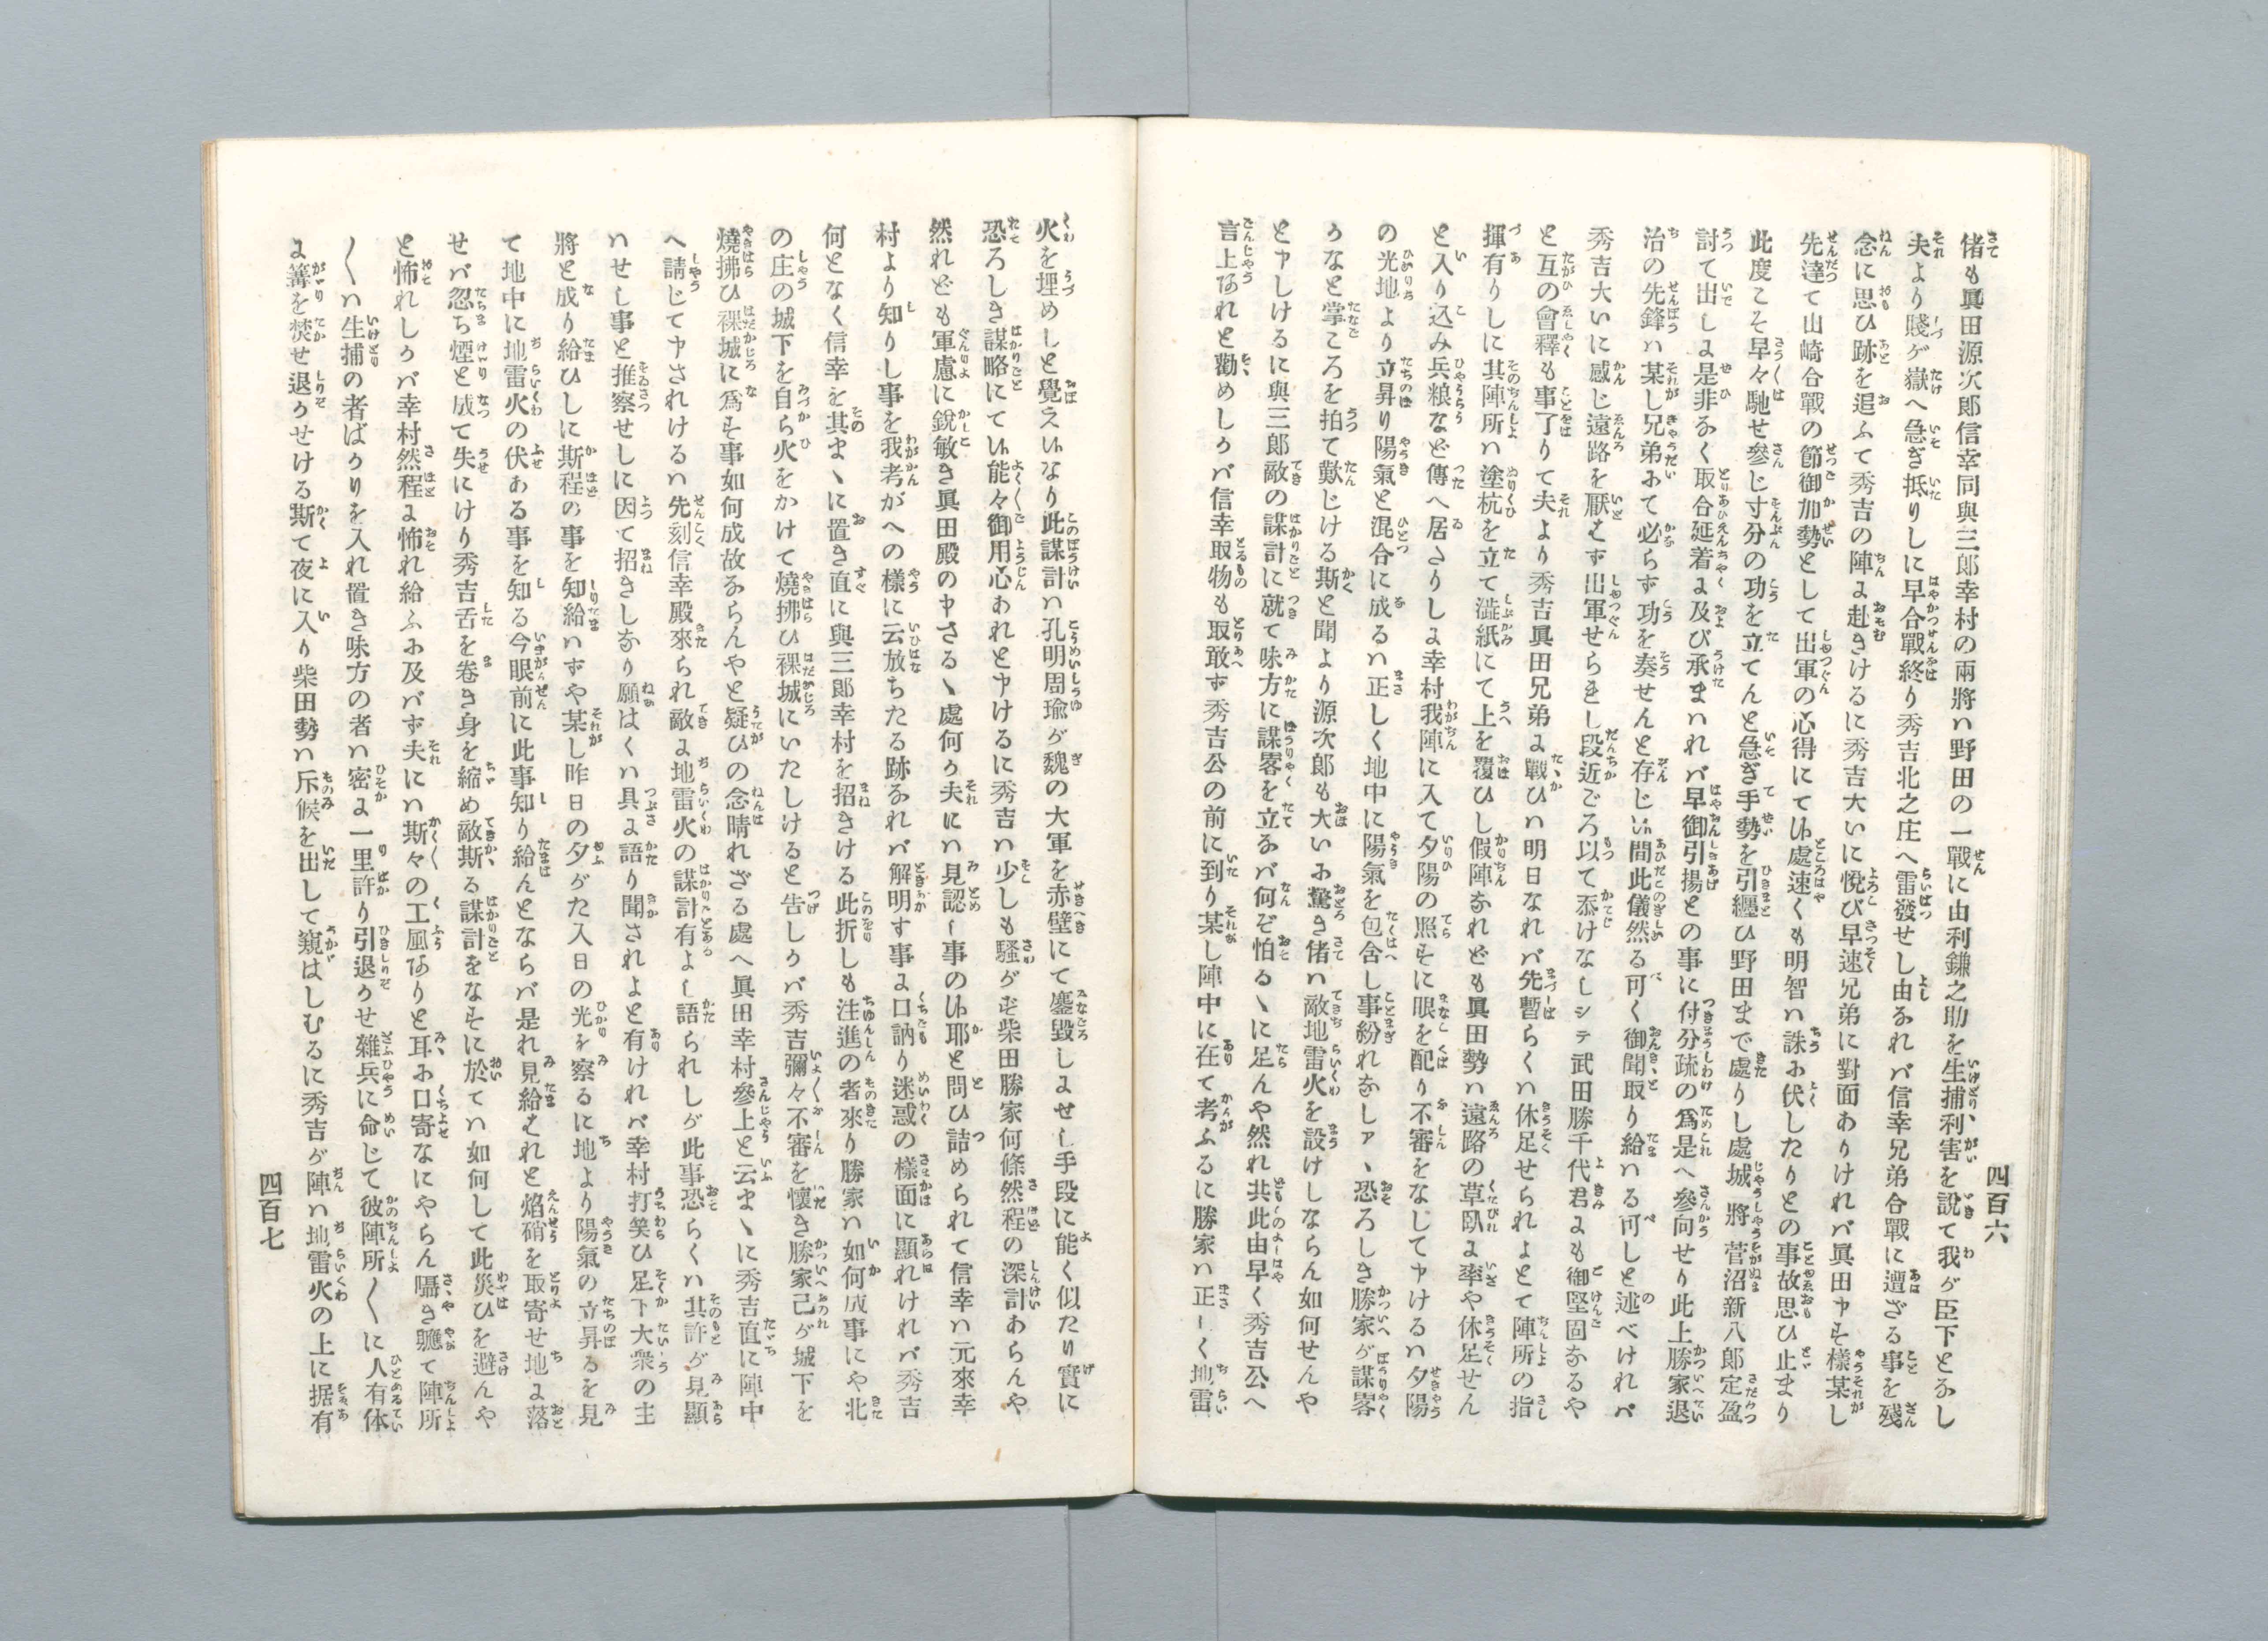 四百六
偖も眞田源次郎信幸同與三郎幸村の兩將ハ野田の一戰に由利鎌之助を生捕利害を說て我が臣下となし
夫より賤ヶ嶽へ急ぎ抵りしに早合戰終り秀吉北之庄へ雷發せし由なれバ信幸兄弟合戰に遭ざる事を殘
念に思ひ跡を追ふて秀吉の陣に赴きけるに秀吉大いに悅び早速兄弟に對面ありけれバ眞田申す樣某し
先達て山崎合戰の節御加勢として出軍の心得にて候處速くも明智ハ誅に伏したりとの事故思ひ止まり
此度こそ早々馳せ參じ寸分の功を立てんと急ぎ手勢を引纒ひ野田まで處りし處城將菅沼新八郎定盈
討つて出しに是非なく取合延着に及び承まハれバ早御引揚との事に付分疏の爲是へ參向せり此上勝家退
治の先鋒ハ某し兄弟にて必らず功を奏せんと存じ候間此儀然る可く御聞取り給ハる可しと述べけれバ
秀吉大いに感じ遠路を厭はず出軍せらるし段近ごろ以て忝けなし〆テ武田勝千代君にも御堅固なるや
と互の會釋も事了りて夫より秀吉眞田兄弟に戰ひハ明日なれバ先暫らくハ休足せられよとて陣所の指
揮有りしに其陣所ハ塗杭を立て澁紙にて上を覆ひし假陣なれども眞田勢ハ遠路の草臥に率や休足せん
と入り込み兵粮など傳へ居さりしに幸村我陣に入て夕陽の照すに眼を配り不審をなして申けるハ夕陽
の光地より立昇り陽氣と混合に成るハ正しく地中に陽氣を包含し事紛れなしアヽ恐ろしき勝家が謀畧
うなと掌ころを拍て歎じける斯と聞より源次郎も大いに驚き偖ハ敵地雷火を設けしならん如何せんや
と申しけるに與三郎敵の謀計に就て味方に謀畧を立なバ何ぞ怕るヽに足んや然れ共此由早く秀吉公へ
言上なれと勸めしうバ信幸取物も取敢ず秀吉公の前に到り某し陣中に在て考ふるに勝家ハ正しく地雷
火を埋めしと覺え候なり此謀計ハ孔明周瑜が魏の大軍を赤壁にて鏖毀しませし手段に能く似たり實に
恐ろしき謀略にて候能々御用心あれと申けるに秀吉ハ少しも騷がず柴田勝家何條然程の深計あらんや
然れども軍慮に銳敏き眞田殿の申さるヽ處何う夫にハ見認し事の候耶と問ひ詰められて信幸ハ元來幸
村より知りし事を我考がへの樣に云放ちたる跡なれバ解明す事に口訥り迷惑の樣面に顯れけれバ秀吉
何となく信幸を其まヽに置き直に與三郎幸村を招きける此折しも注進の者來り勝家ハ如何成事にや北
の庄の城下を自ら火をかけて燒拂ひ裸城にいたしけると告しうバ秀吉彌々不審を懷き勝家己が城下を
燒拂ひ裸城に爲す事如何成故ならんやと疑ひの念晴れざる處へ眞田幸村參上と云まヽに秀吉直に陣中
へ請じて申されけるハ先刻信幸殿來られ敵に地雷火の謀計有よし語られしが此事恐らくハ其許が見顯
ハせし事と推察せしに因て招きしなり願はくハ具に語り聞されよと有けれバ幸村打笑ひ足下大衆の主
將と成り給ひしに斯程の事を知給ハずや某し昨日の夕がた入日の光を察るに地より陽氣の立昇るを見
て地中に地雷火の伏ある事を知る今眼前に此事知り給んとならバ是れ見給はれと焰硝を取寄せ地に落
せバ忽ち煙と成て失にけり秀吉舌を卷き身を縮め敵斯る謀計をなすに於てハ如何して此災ひを避んや
と怖れしうバ幸村然程に怖れ給ふに及バず夫にハ斯々の工風ありと耳に口寄なにやらん囁き軈て陣所
〱ハ生捕の者ばうりを入れ置き味方の者ハ密に一里許り引退うせ雜兵に命じて彼陣所〱に人有体
に篝を焚せ退うせける斯て夜に入り柴田勢ハ斥候を出して窺はしむるに秀吉が陣ハ地雷火の上に据有
四百七